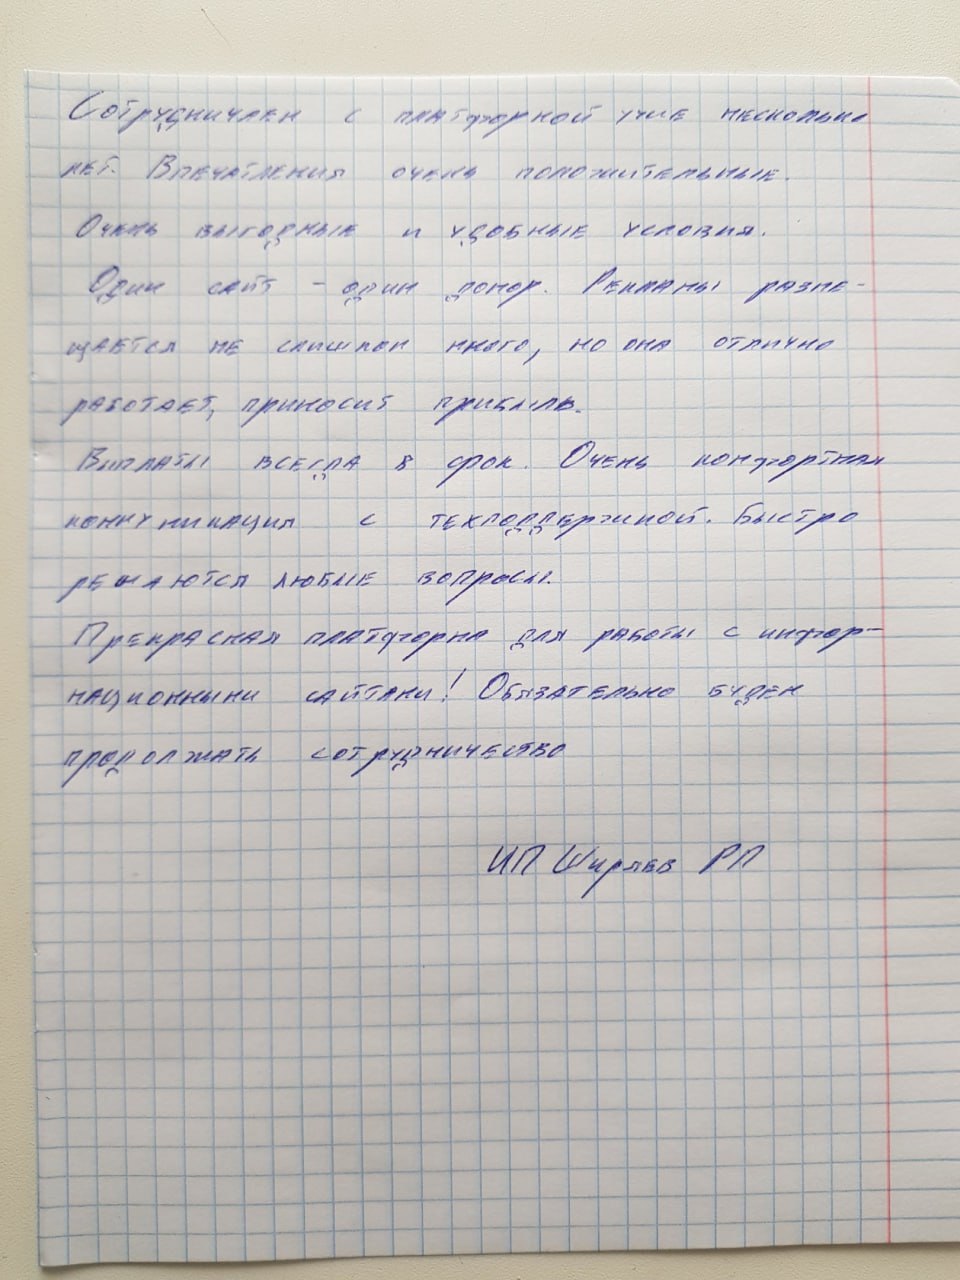 Сотрудничаем с платформой уже несколько
лет. Впечатления очень положительные.
Очень выгодные и удобные условия.
Один сайт - один домор. Рекламы разме-
щается не слишком много, но она отлично
работает, приносит прибыль.
Выплаты всегда в срок. Очень комфортная
коммуникация с техподдержкой. Быстро
решаются любые вопросы.
Прекрасная платформа для работы с инфор-
мационными сайтами! Обязательно будем
продолжать сотрудничество
ИП Ширяев РП